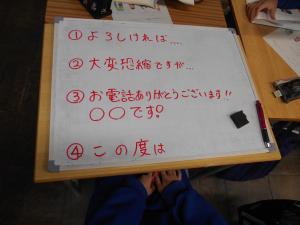 ① よろしければ....
② 大変恐縮ですが...
③ お電話ありがとうございます!!
〇〇です!
④ この度は